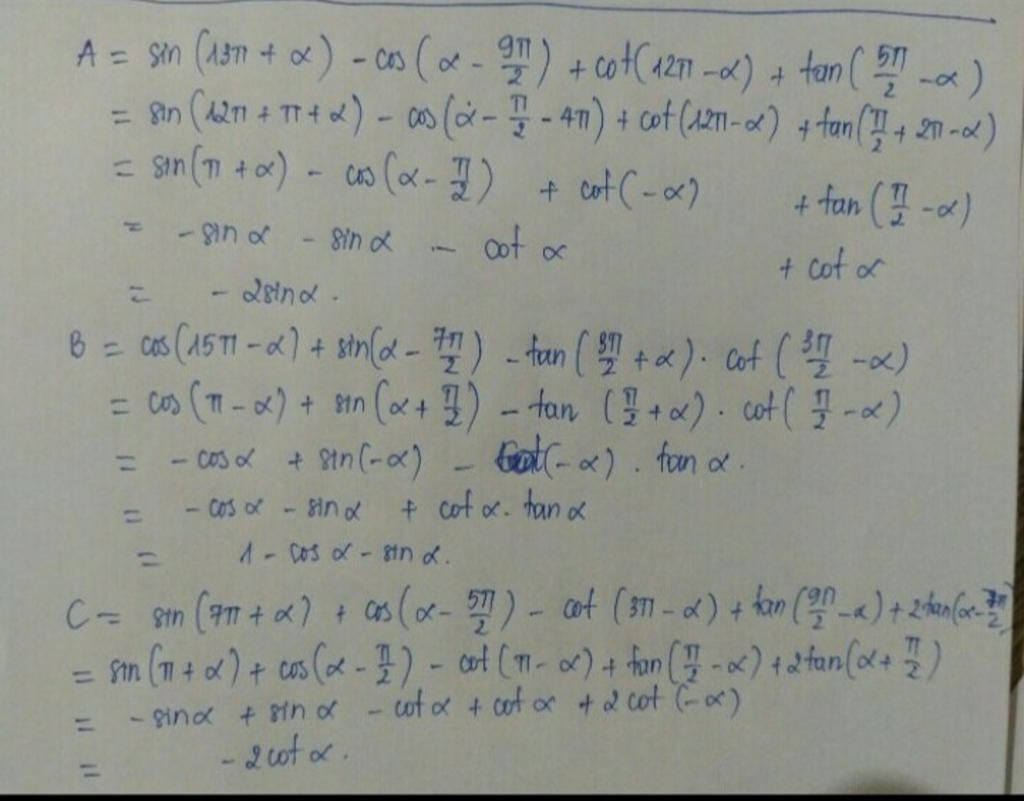 A = sin (13π + α) - cos (α - 9π/2) + cot (12π - α) + tan (5π/2 - α)
= sin (12π + π + α) - cos (α - π/2 - 4π) + cot (12π - α) + tan (π/2 + 2π - α)
= sin (π + α) - cos (α - π/2) + cot (-α) + tan (π/2 - α)
= - sin α - sin α - cot α + cot α
= - 2sin α.
B = cos (15π - α) + sin (α - 7π/2) - tan (3π/2 + α) . cot (3π/2 - α)
= cos (π - α) + sin (α + π/2) - tan (π/2 + α) . cot (π/2 - α)
= - cos α + sin (-α) - cot (-α) . tan α.
= - cos α - sin α + cot α. tan α
= 1 - cos α - sin α.
C = sin (7π + α) + cos (α - 5π/2) - cot (3π - α) + tan (9π/2 - α) + 2 tan (α - 7π/2)
= sin (π + α) + cos (α - π/2) - cot (π - α) + tan (π/2 - α) + 2 tan (α + π/2)
= - sin α + sin α - cot α + cot α + 2 cot (-α)
= - 2 cot α.